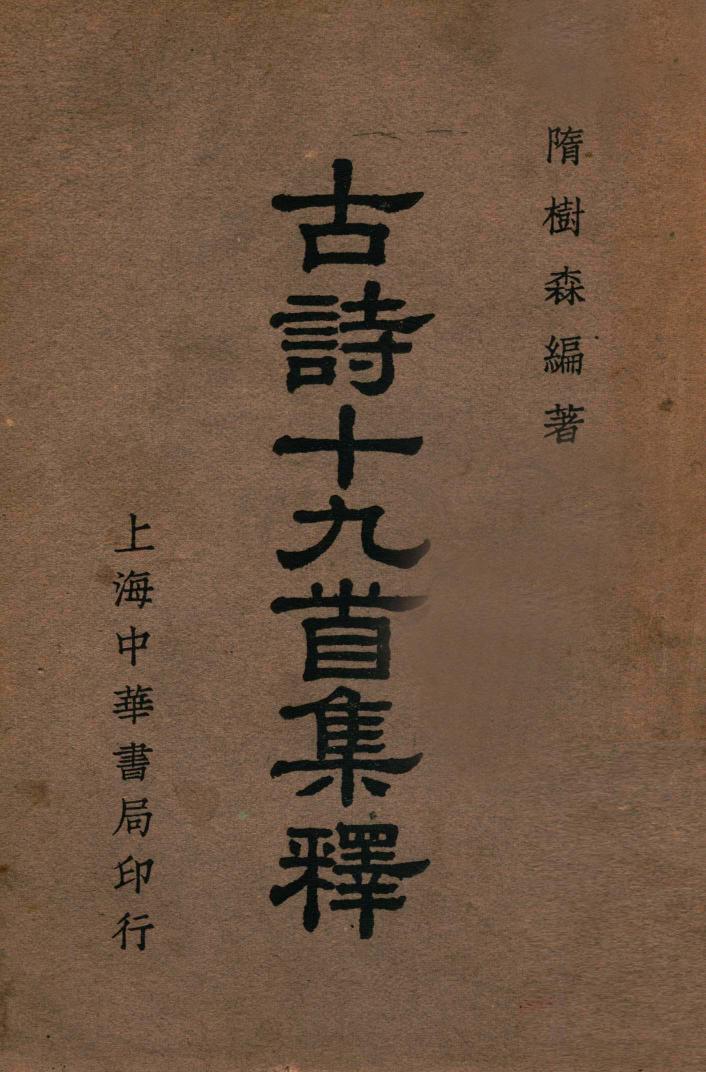 隋樹森編著
古詩十九首集釋
上海中華書局印行